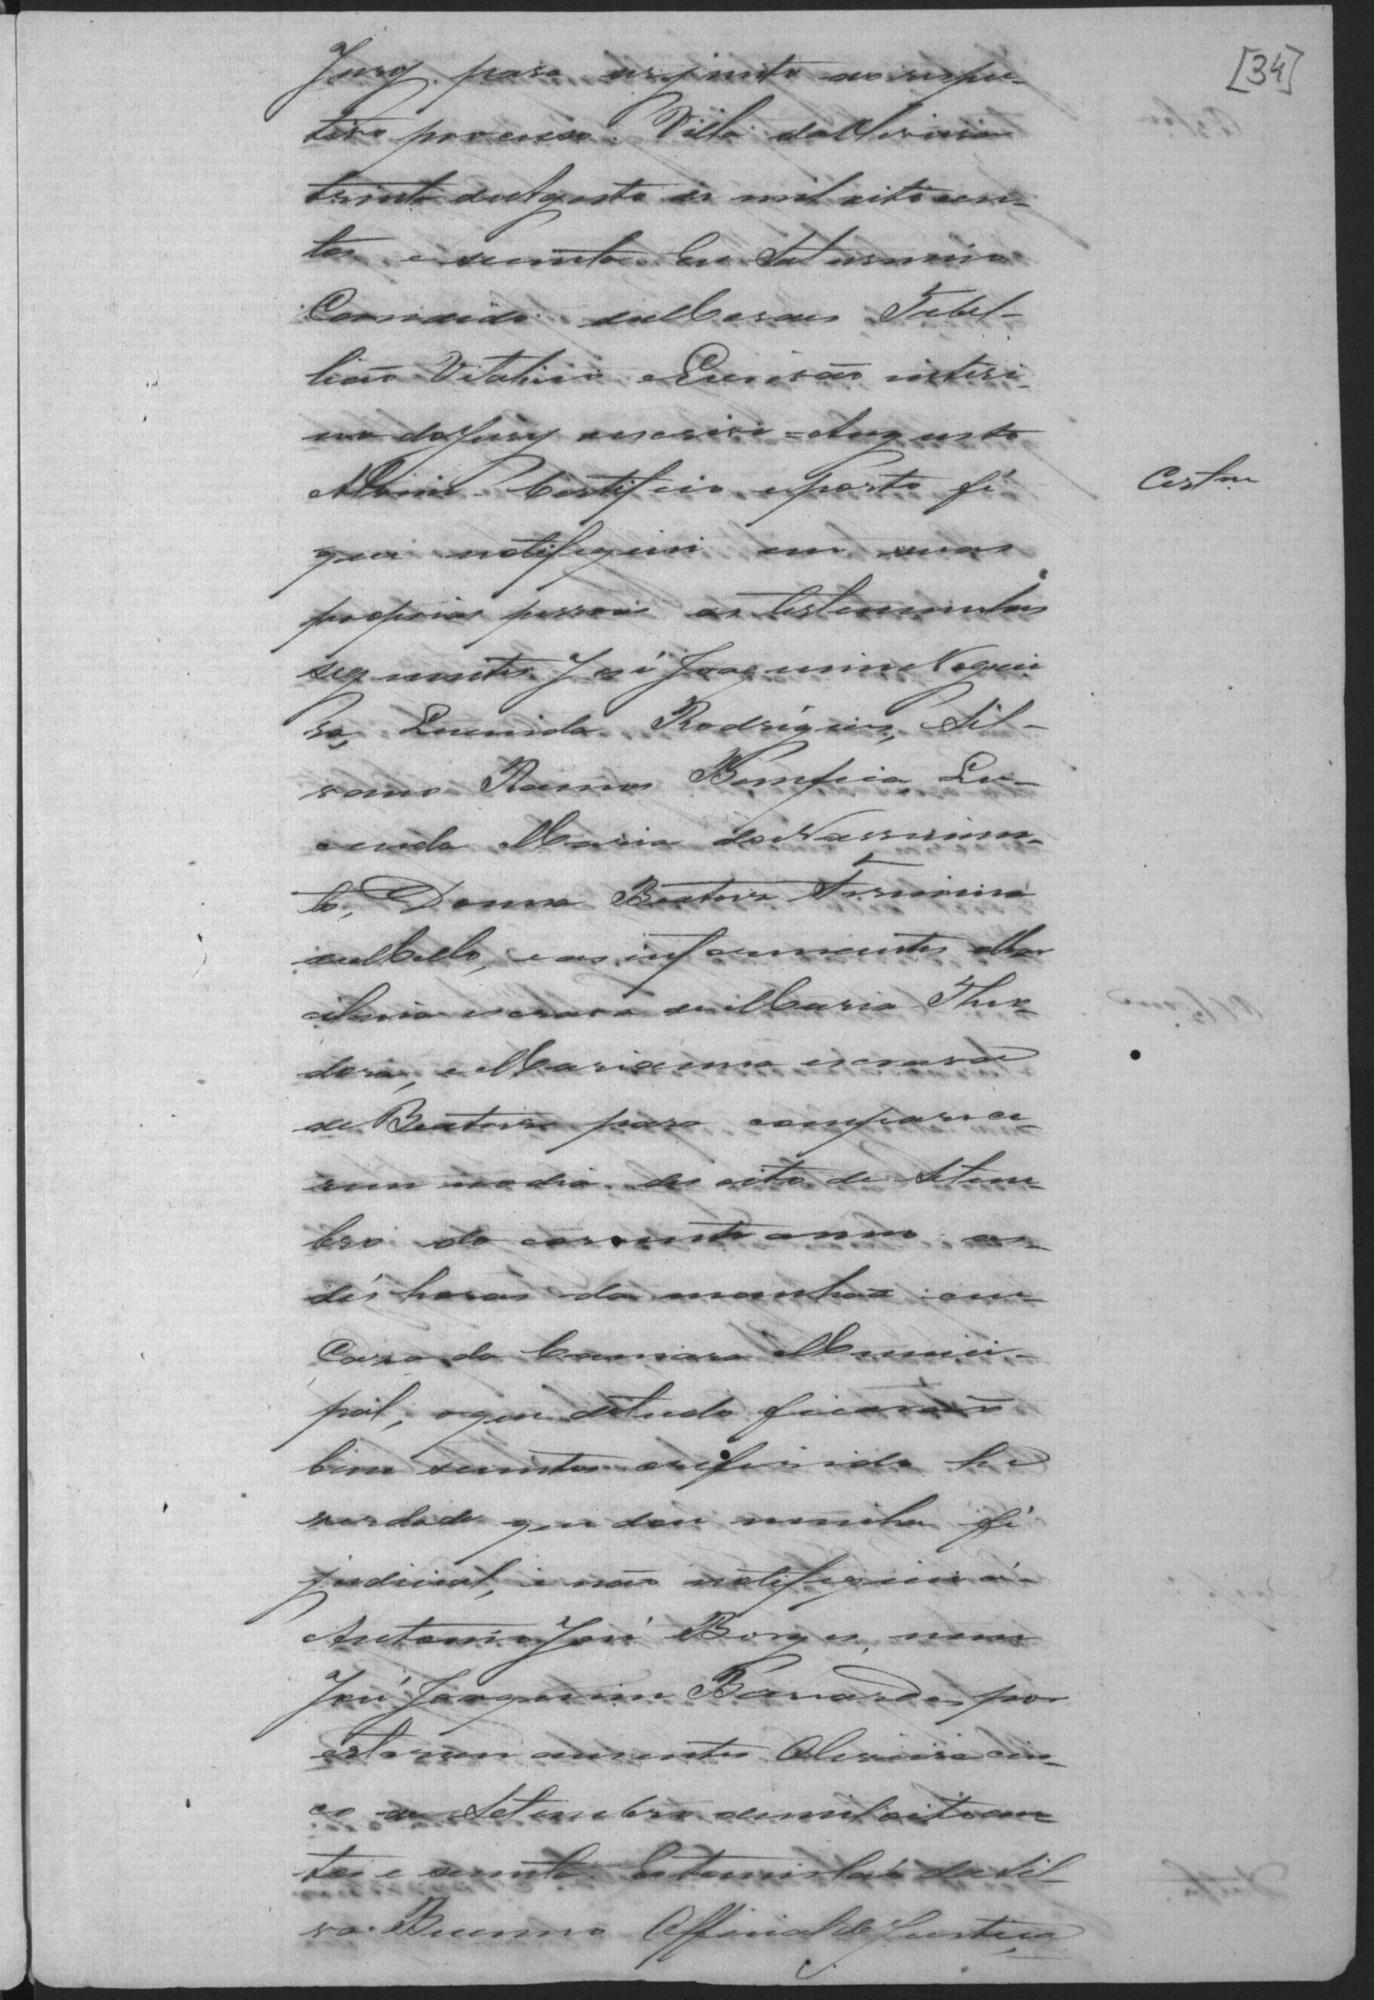 [34]
Jury para ser junto ao respec-
tivo processo. Villa da Oliveira
trinta de Agosto de mil oito cen-
tos e secenta. Eu Saturnino
Candido de Moraes Tabel-
lião Vitalicio e Escrivão interi-
no do Jury escrevi = Augusto
Certifico e porto fé
Certam
que notifiquei em suas
proprias pessoas as testemunhas
seguintes José Joaquim Noguei
ra, Rodrigues, Sil-
vano Ramos Bemfica, Lu-
cinda Maria do Nascimen-
to, Donna Beatriz Firmina
de Mello, e as informantes Ma
escrava de Maria Theo-
dora, e Marianna escrava
de Beatriz para comparece-
rem no dia des oito de Setem-
bro do corrente anno as
dés horas da manhaã em
Casa da Camara Munici-
pal, o que de tudo ficarão
bem scientes o referido he
verdade que dou minha fé
judicial, e não notifiquei a
Antonio José Borges, nem
José Joaquim Bernardes por
estarem ausentes Oliveira cin-
co de Setembro de mil oito cen
tos e secenta. Estanislaó da Sil-
va Bueno Official de Justiça